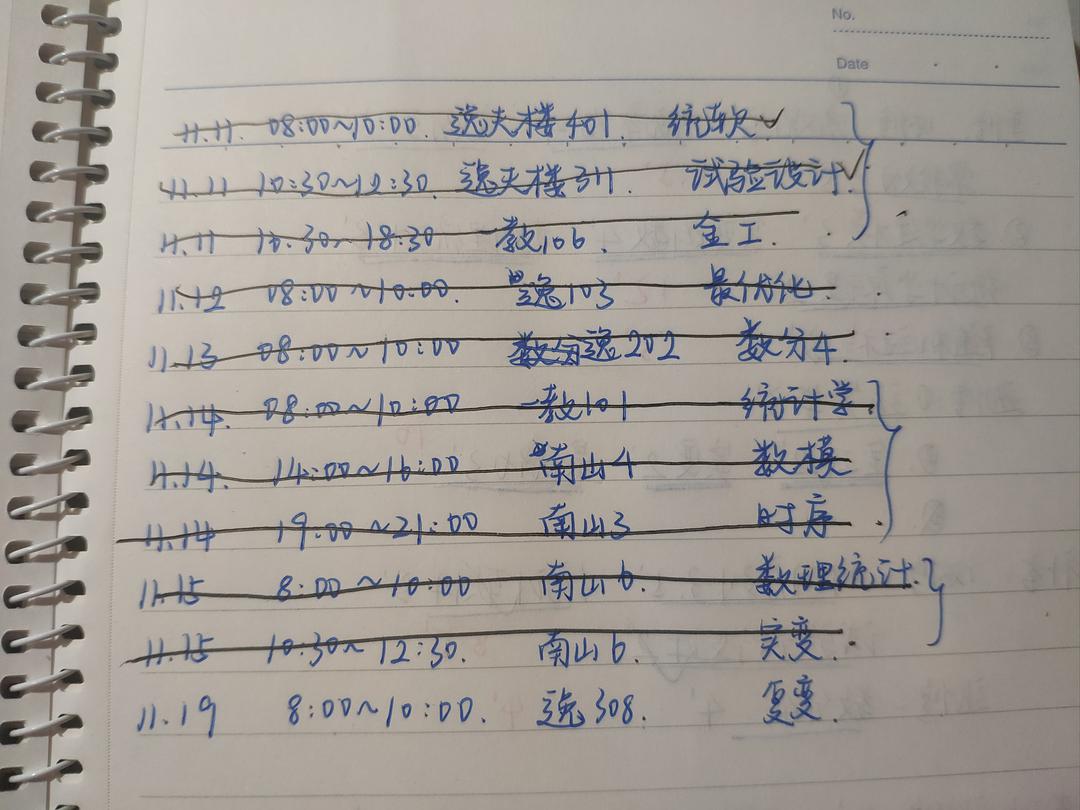 No.
Date
11.11. 08:00~10:00. 逸夫楼401. 统软✓
11.11 10:30~12:30. 逸夫楼311. 试验设计.✓
11.11 16:30~18:30 一教106. 金工.
11.12 08:00~10:00. 逸103 最优化.
11.13 08:00~10:00 逸202 数分4.
11.14. 08:00~10:00 一教101 统计学.
11.14. 14:00~16:00 南山4 数模
11.14 19:00~21:00 南山3 时序.
11.15 8:00~10:00 南山6. 数理统计.
11.15 10:30~12:30. 南山6. 实变.
11.19 8:00~10:00. 逸308. 复变.